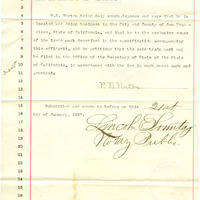 W.H. Worton being duly sworn, deposes and says that he is
located and doing business in the City and County of San Fran-
cisco, State of California, and that he is the exclusive owner
of the trade mark described in the specification accompanying
this affidavit, and he petitions that the said trade mark may
be filed in the Office of the Secretary of State of the State
of California, in accordance with the law in such cases made and
provided.
Subscribed and sworn to before me this 21st
day of January, 1897.
Lincoln Sonntag
Notary Public